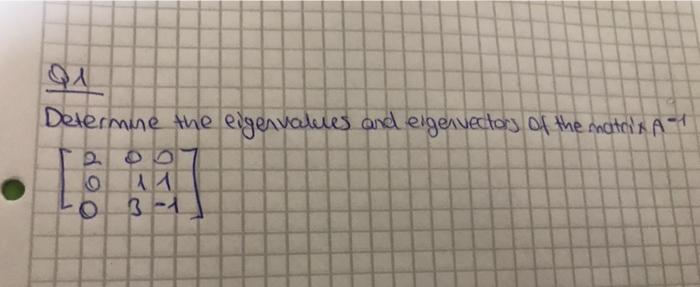 Q1
Determine the eigenvalues and eigenvectors of the matrix A⁻¹
[2 0 0
0 1 1
0 3 -1]